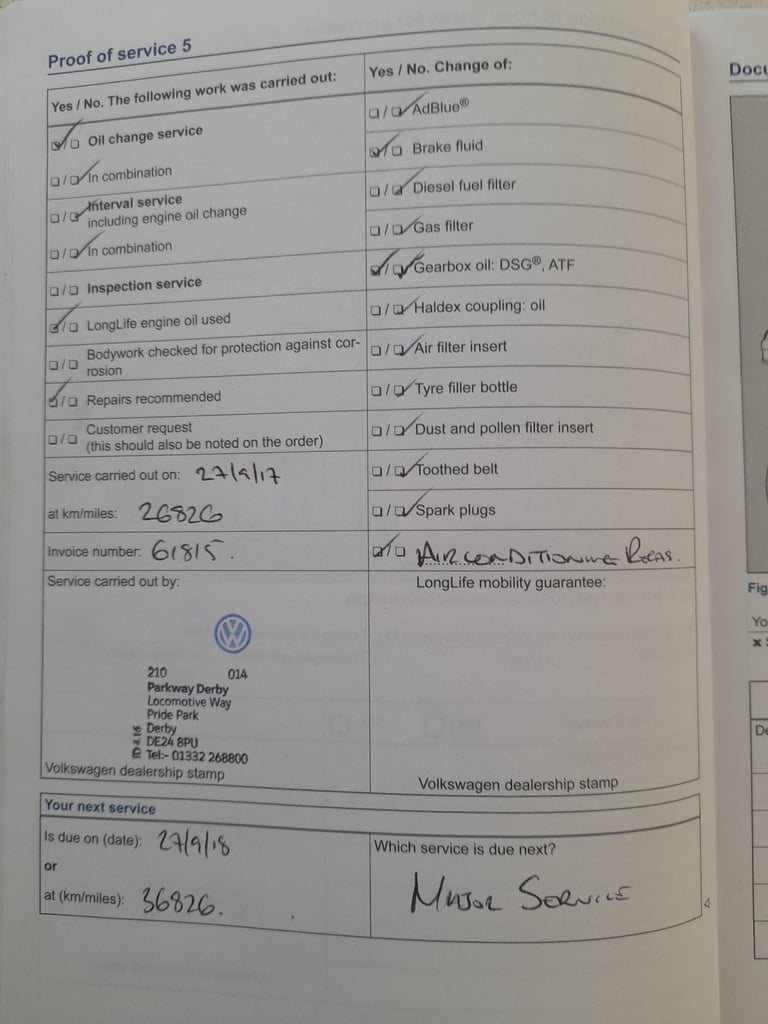 Proof of service 5
Yes / No. The following work was carried out:
Oil change service
In combination
Interval service
including engine oil change
In combination
Inspection service
LongLife engine oil used
Bodywork checked for protection against cor-
rosion
Repairs recommended
Customer request
(this should also be noted on the order)
Service carried out on: 27/9/17
at km/miles: 26826
Invoice number: 61815.
Service carried out by:
210 014
Parkway Derby
Locomotive Way
Pride Park
Derby
DE24 8PU
Tel:- 01332 268800
Volkswagen dealership stamp
Yes / No. Change of:
AdBlue®
Brake fluid
Diesel fuel filter
Gas filter
Gearbox oil: DSG®, ATF
Haldex coupling: oil
Air filter insert
Tyre filler bottle
Dust and pollen filter insert
Toothed belt
Spark plugs
AIRCONDITIONING REGAS.
LongLife mobility guarantee:
Volkswagen dealership stamp
Your next service
Is due on (date): 27/9/18
or
at (km/miles): 36826.
Which service is due next?
MAJOR SERVICE
Docu
Fig
Yo
De